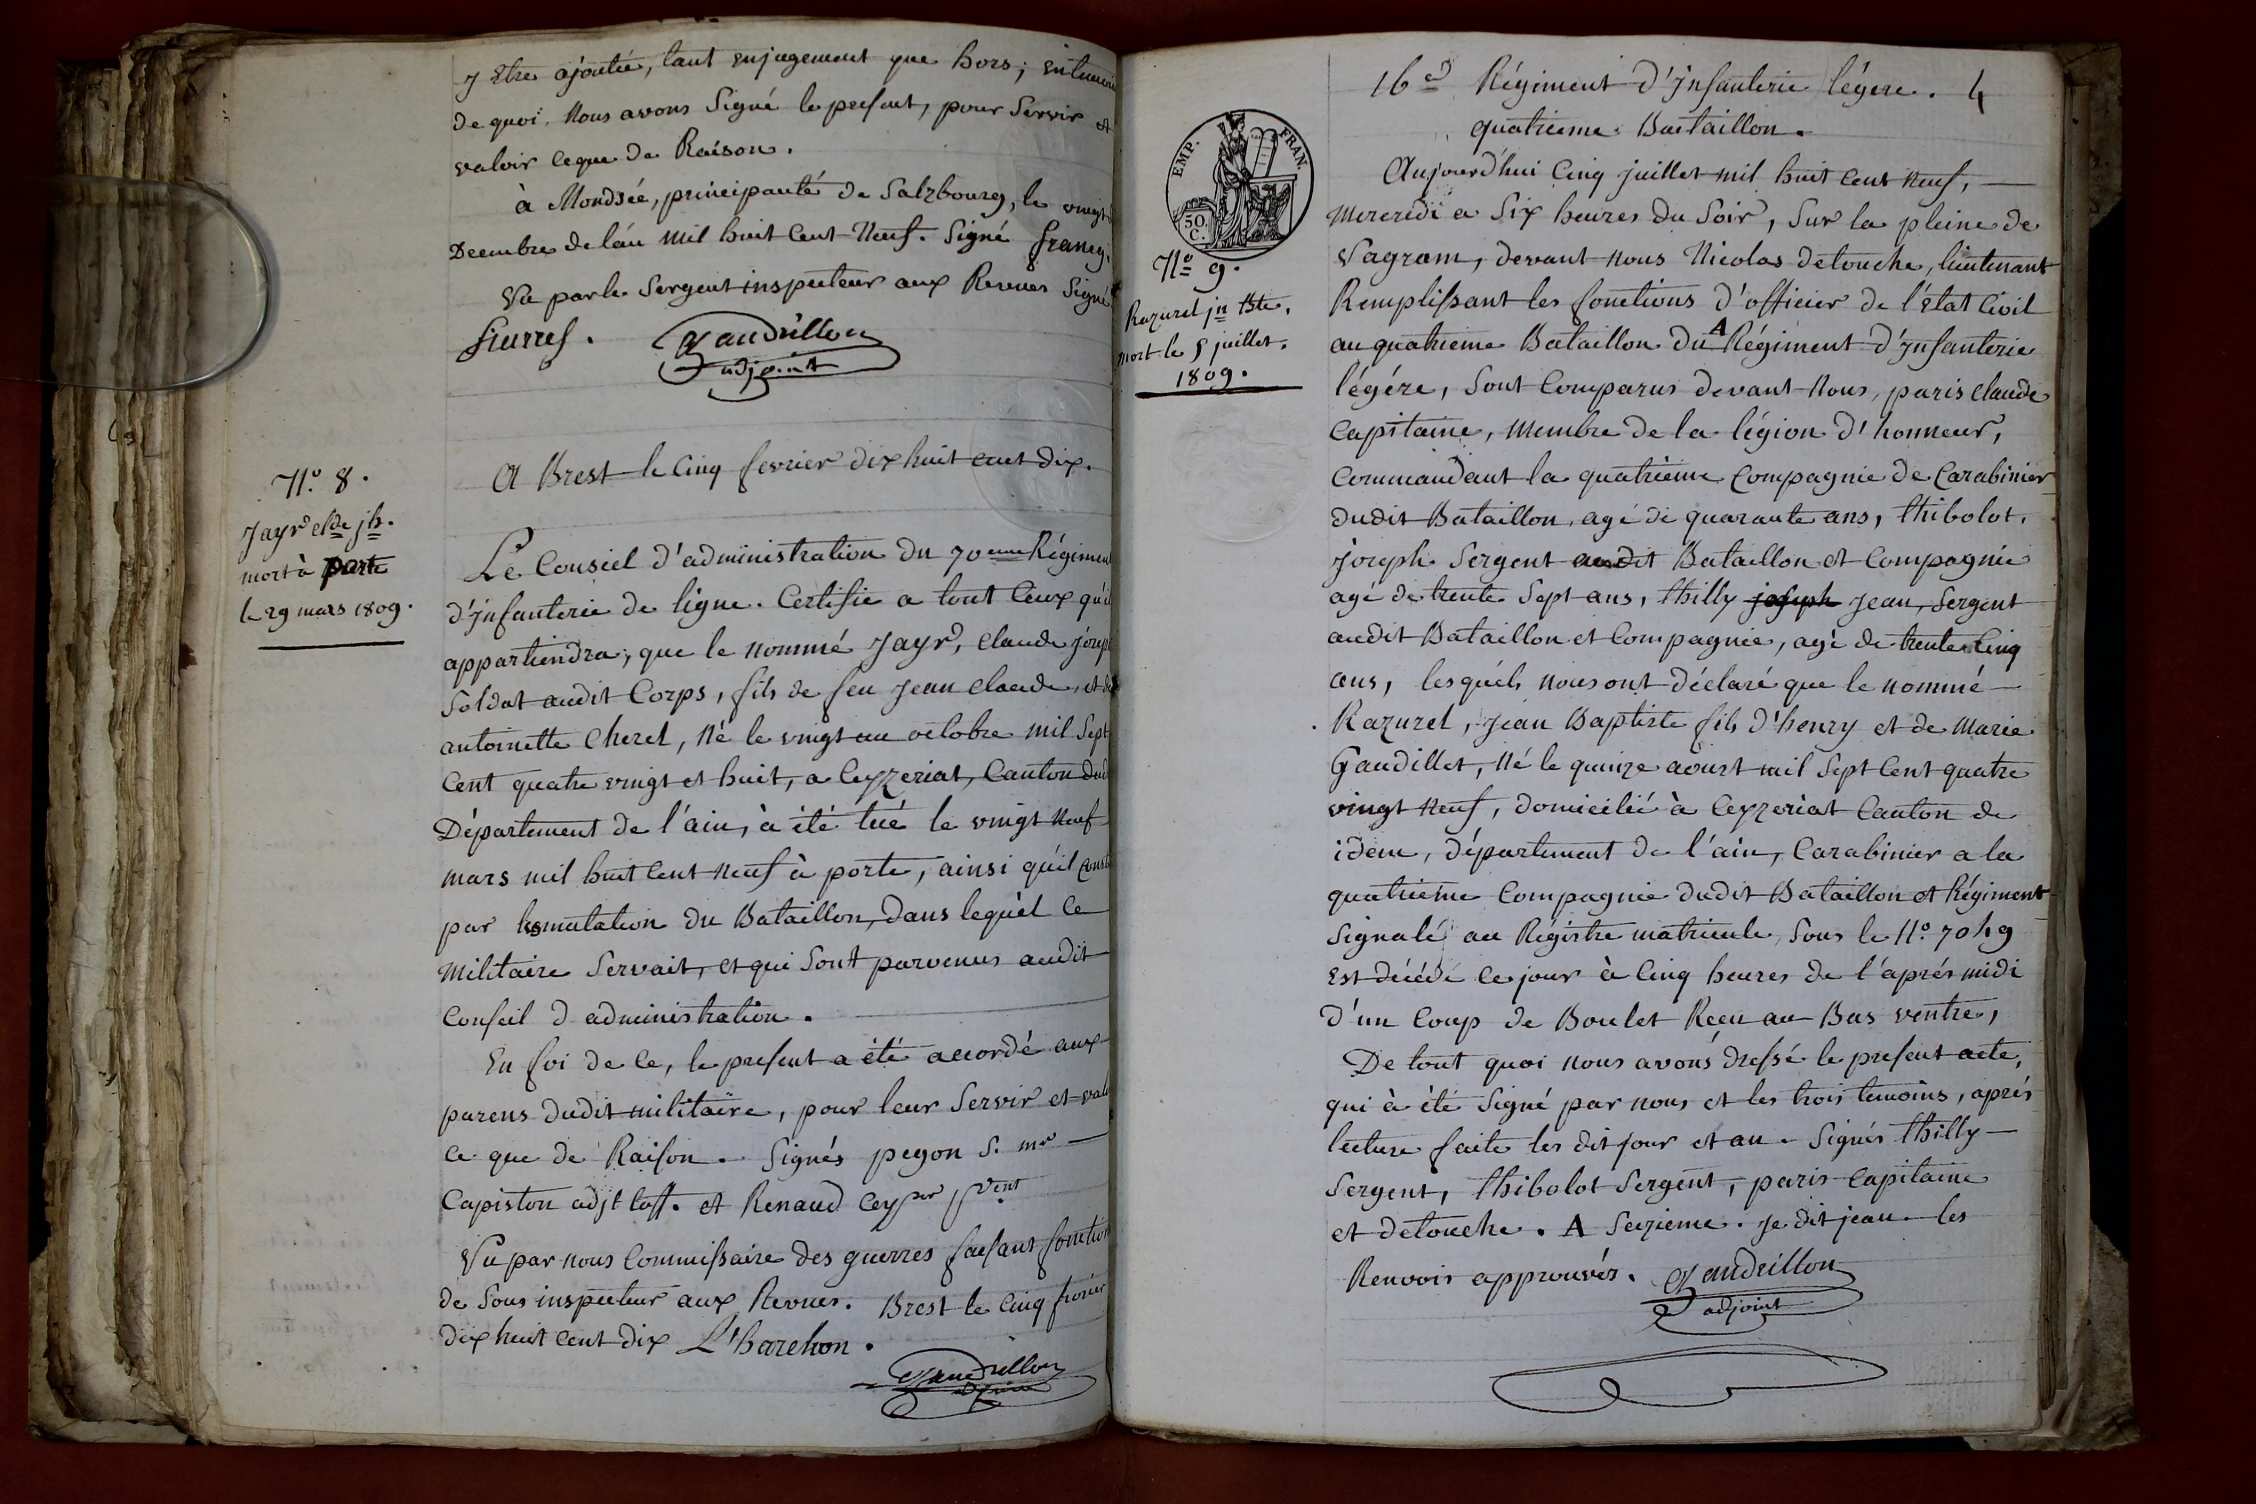 y Etre ajoutée, tant enjugement que hors; en
de quoi. Nous avons Signé le present, pour Servir et
valoir ceque de Raison.
à Mondsée, principauté de Salzbourg, le vingt
Decembre de l'an mil huit Cent Neuf. Signé
Vu par le Sergent inspecteur aux Revues Signé
Gaudrillon
adjoint
A Brest le Cinq fevrier dix huit cent dix.
N.o 8.
Jayr Cl.de jh.
mort à porte
le 29 mars 1809.
Le Consiel d'administration du 70eme Régiment
d'jnfanterie de ligne. Certifie a tout Ceux qu'il
appartiendra, que le nommé Jayr, Claude joseph
Soldat audit Corps, fils de feu Jean Claude, et de
antoinette Cheret, Né le vingt un octobre mil Sept
Cent quatre vingt et huit, a Ceyzeriat, Canton dud
Département de l'ain, à été tué le vingt Neuf
mars mil huit Cent Neuf à porte, ainsi qu'il
par lesmutation du Bataillon, dans lequel Ce
Militaire Servait, et qui Sont parvenus audit
Conseil d administration.
En foi de Ce, le present a été accordé aux
parens dudit militaire, pour leur Servir et
Ce que de Raison. Signés pegon S. mr
Capiston adjt et Renaud
Vu par nous Commissaire des guerres faisant fonction
de Sous inspecteur aux Revues. Brest le Cinq
dix huit Cent dix L'harehon.
Gaudrillon
adjoint
16e Régiment d'jnfanterie légere. 4
quatrieme Bataillon.
EMP. FRAN.
50 C.
N.o 9.
Razurel jn Bte.
mort le 5 juillet.
1809.
Aujourd'hui Cinq juillet mil huit Cent Neuf,
Mercredi a Six heures du Soir, Sur la pleine de
Vagram, devant nous Nicolas detouche, lieutenant
Remplissant les fonctions d'officier de l'Etat Civil
au quatrieme Bataillon du A Régiment d'jnfanterie
légére, Sont Comparus devant Nous, paris Claude
Capitaine, Membre de la légion d'honneur,
Commandant la quatrième Compagnie de Carabinier
dudit Bataillon, agé de quarante ans, thibolot.
joseph Sergent audit Bataillon et Compagnie
agé de trente Sept ans, thilly joseph Jean, Sergent
audit Bataillon et Compagnie, agé de trente Cinq
ans, lesquéls nous ont déclaré que le nommé
Razurel, Jean Baptiste fils d'henry et de Marie
Gaudillet, Né le quinze aoust mil Sept Cent quatre
vingt Neuf, domicilié à Ceyzeriat Canton de
idem, département de l'ain, Carabinier a la
quatrieme Compagnie dudit Bataillon et Régiment
Signalé au Régistre matricule, Sous le N.o 7049
Est décédé Ce jour à Cinq heures de l'aprés midi
d'un Coup de Boulet Recu au Bas ventre,
De tout quoi nous avons dressé le present acte,
qui à été Signé par nous et les trois temoins, aprés
lecture faite les dit jour et an. Signés thilly
Sergent, thibolot Sergent, paris Capitaine
et detouche. A Seizieme. Je dit jean. les
Renvois approuvés. Gaudrillon
adjoint